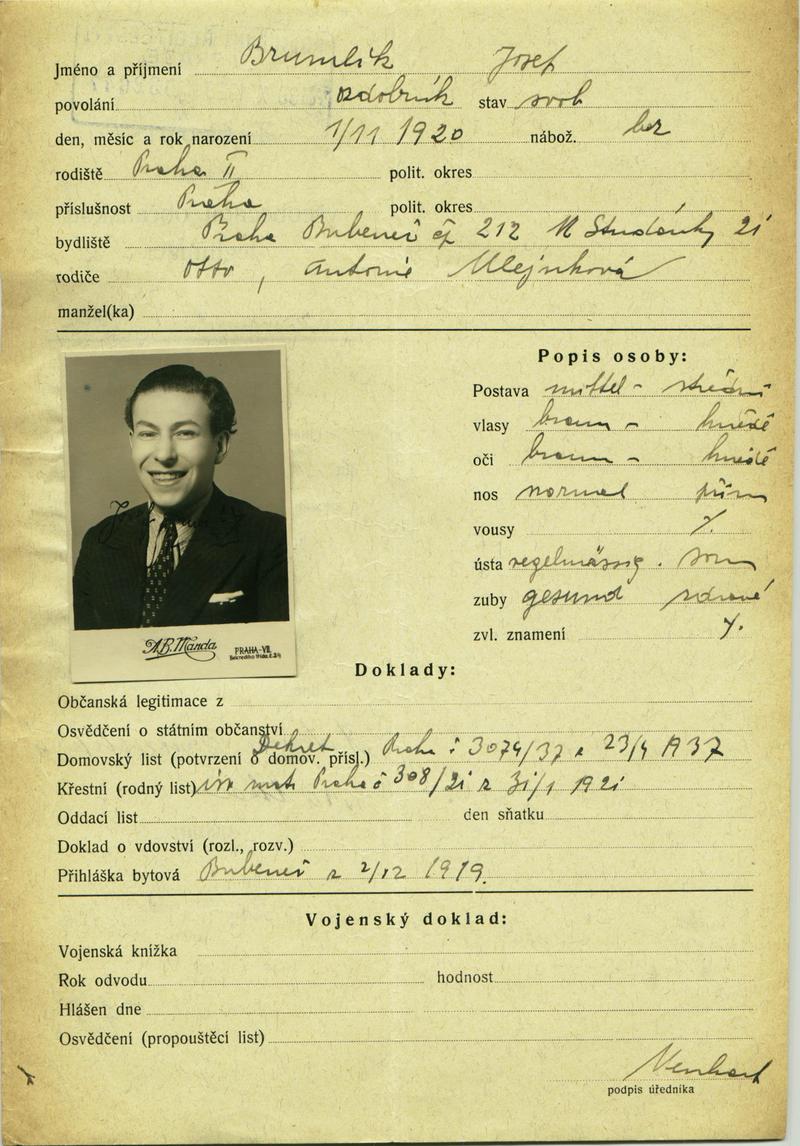 Jméno a příjmení Brumlík Josef
povolání ozdobník stav svob
den, měsíc a rok narození 1/11 1920 nábož. bez
rodiště Praha II polit. okres
příslušnost Praha polit. okres
bydliště Praha Bubeneč čp 212 Studánky 21
rodiče Otto, Antonie Mlejnková
manžel(ka)
Popis osoby:
Postava mittel - střední
vlasy braun - hnědé
oči braun - hnědé
nos normal přím
vousy ⁒
ústa regelmässig. soum
zuby gesund zdravé
zvl. znamení ⁒
A.B. Manda PRAHA-VII.
Doklady:
Občanská legitimace z
Osvědčení o státním občanství
Dekret
Domovský list (potvrzení o domov. přísl.) Praha č 3074/37 z 23/4 1937
Křestní (rodný list) isr mat Praha č 308/21 z 31/1 1921
Oddací list den sňatku
Doklad o vdovství (rozl., rozv.)
Přihláška bytová Bubeneč z 2/12 1919.
Vojenský doklad:
Vojenská knížka
Rok odvodu hodnost
Hlášen dne
Osvědčení (propouštěcí list)
podpis úředníka